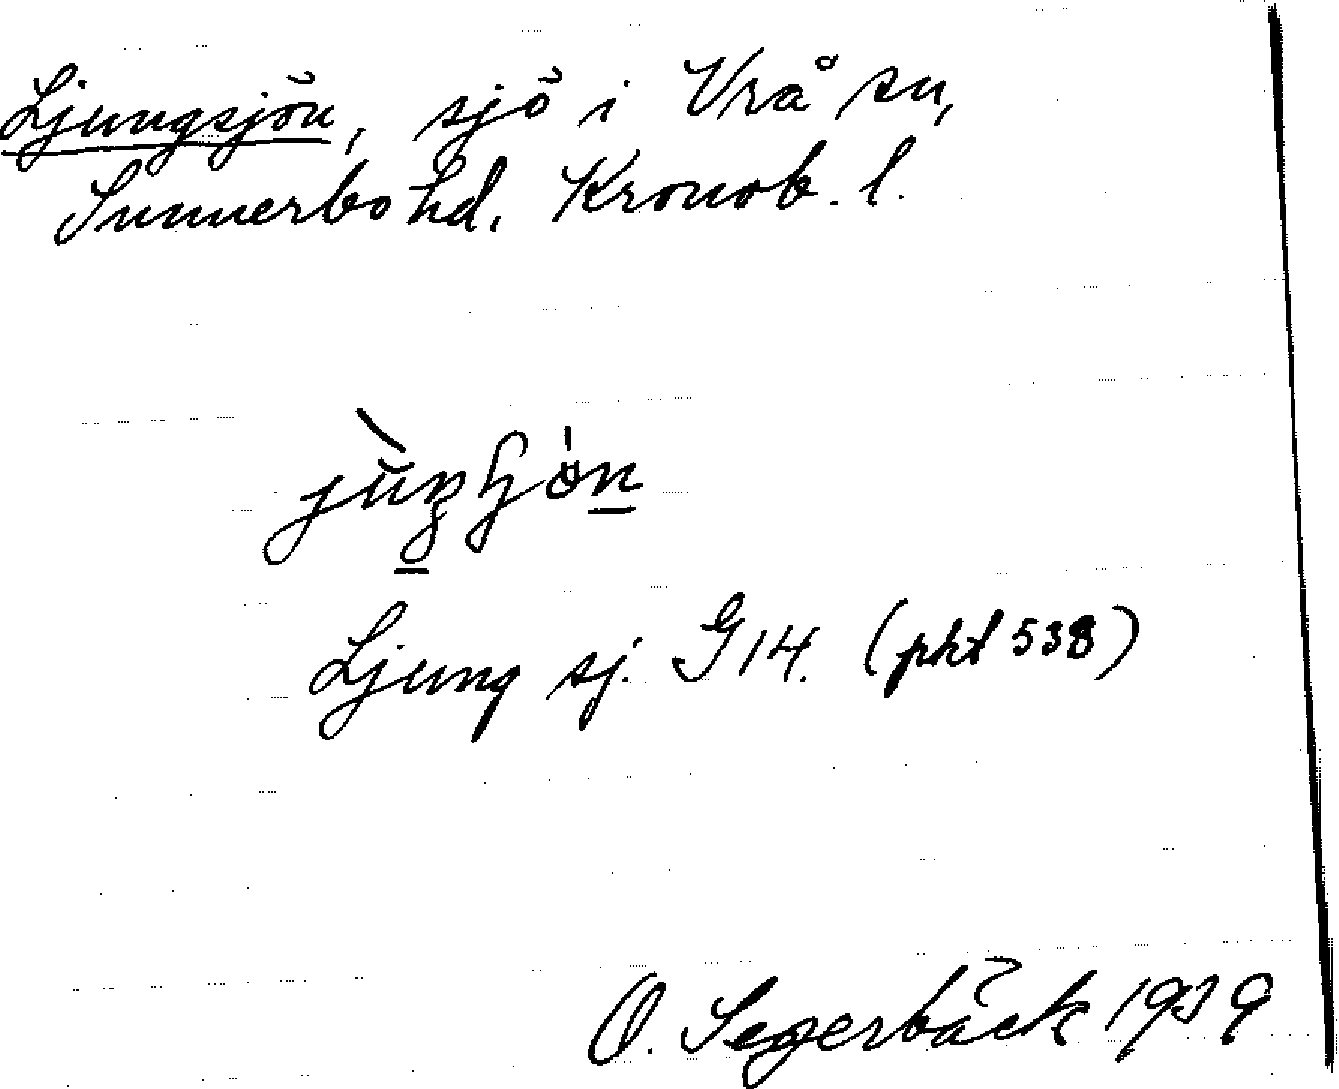 Ljungsjön, sjö i Vrå sn,
Sunnerbo hd. Kronob. l.
Ljung sj. G14. (pkt 538)
O. Segerbäck 1939